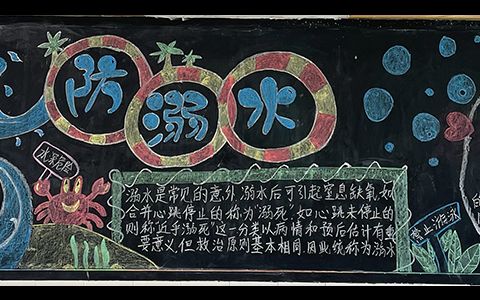 防溺水
水深危险
溺水是常见的意外,溺水后可引起窒息缺氧,如
合并心跳停止的称为“溺死”,如心跳未停止的
则称“近乎溺死”这一分类以病情和预后估计有重
要意义,但救治原则基本相同,因此统称为溺水
禁止游泳